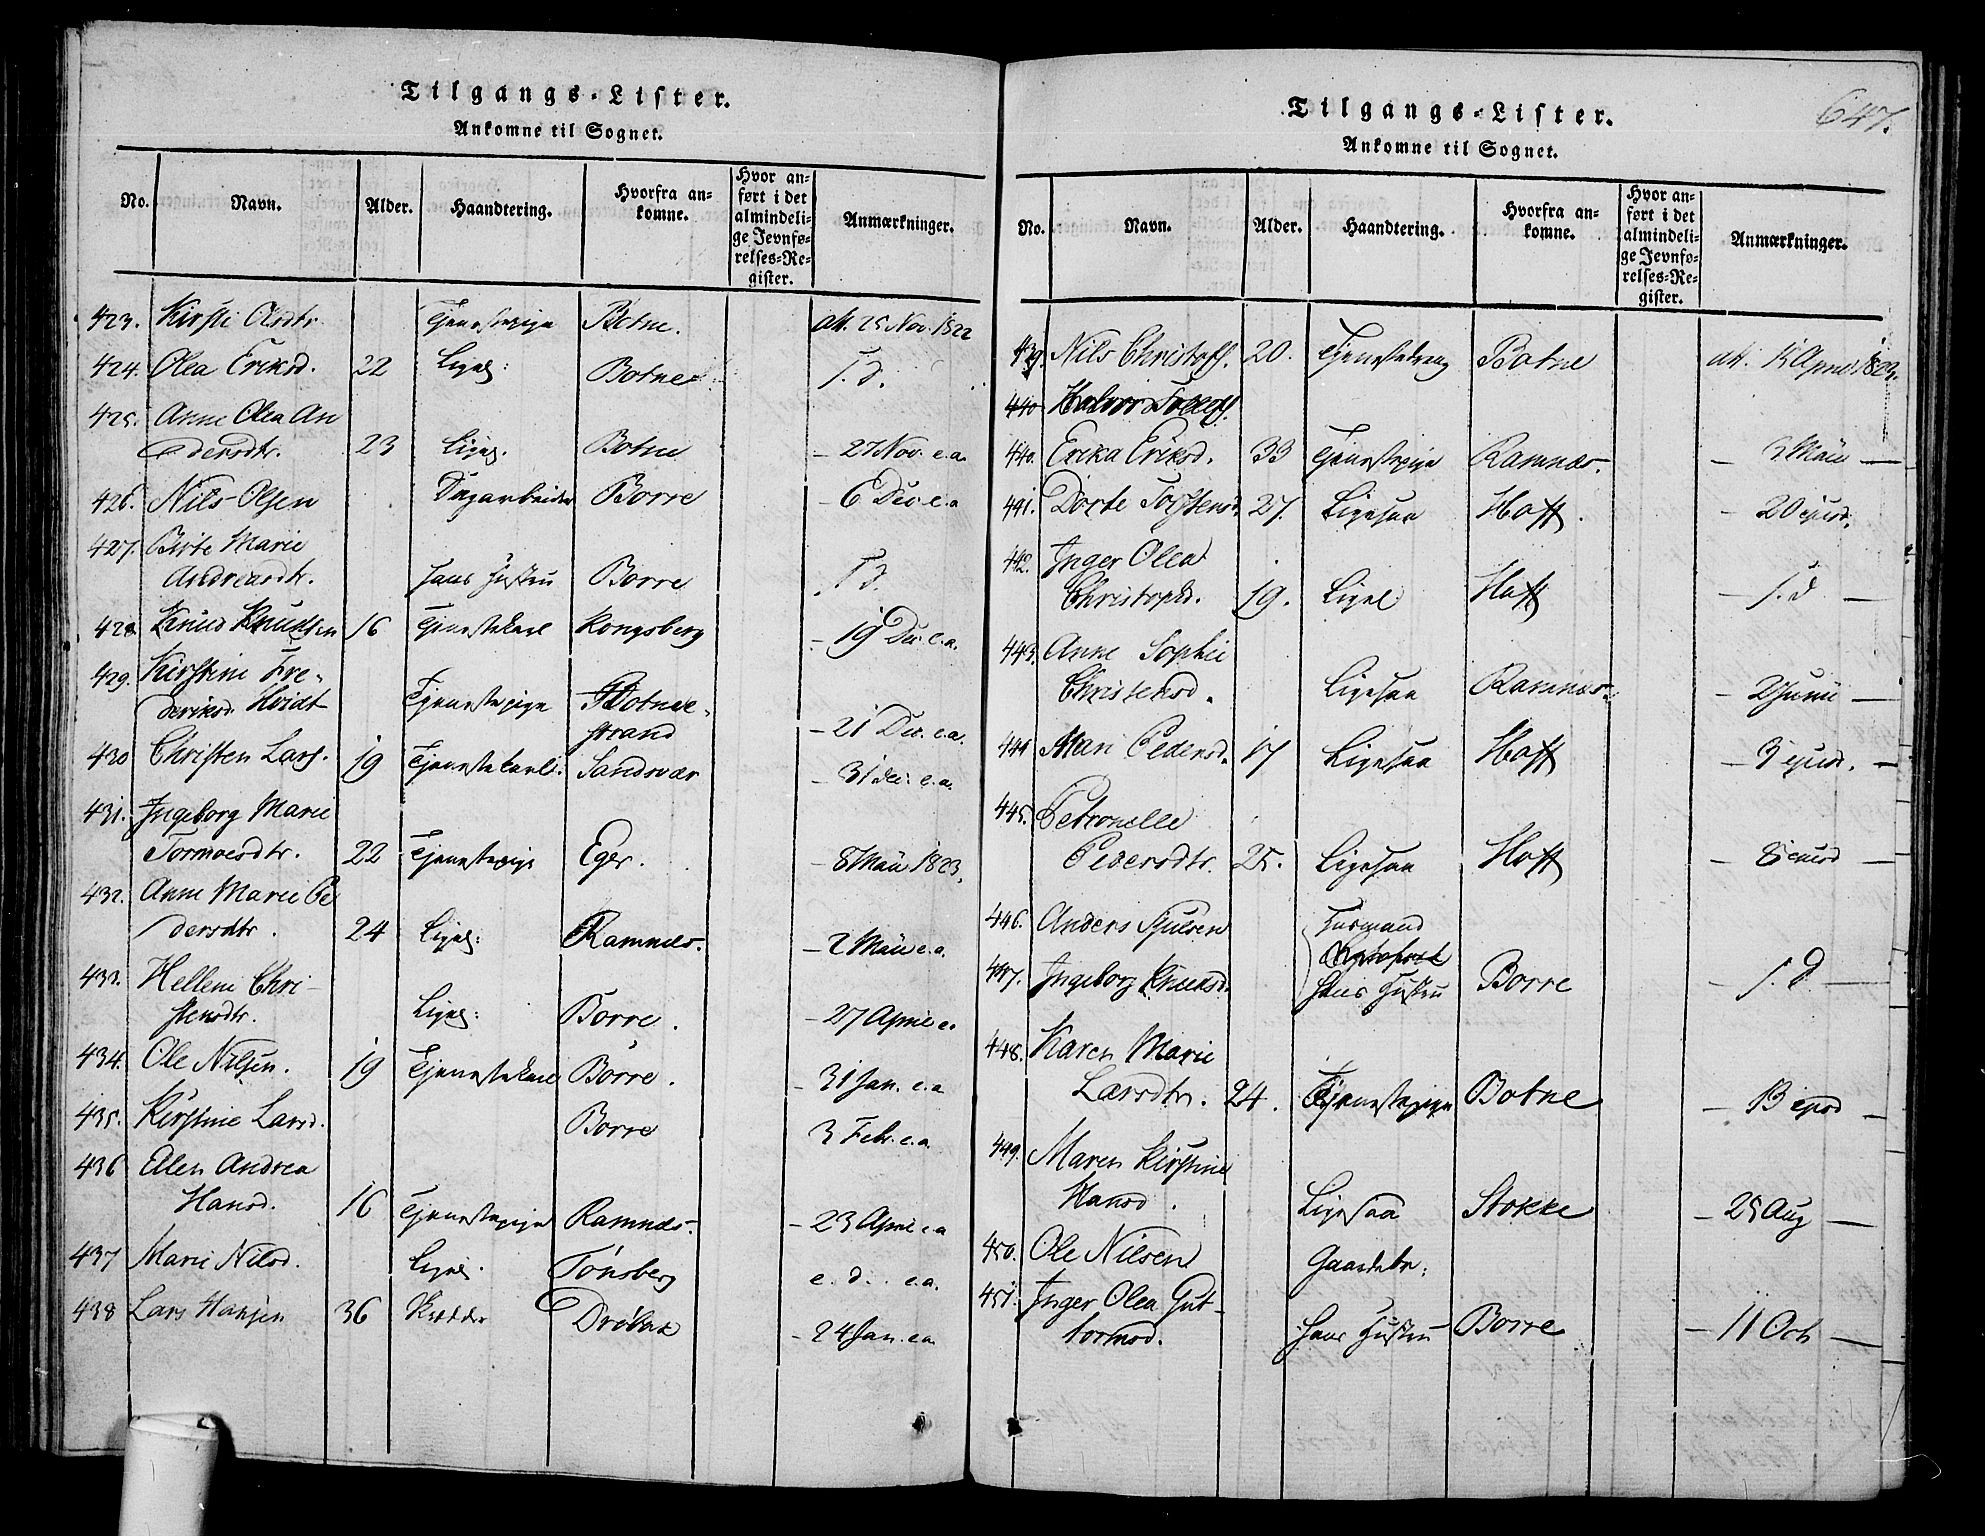 Tilgangs-Lister.
Ankomne til Sognet.
No. Navn. Alder. Haandtering. Hvorfra ankomne. Hvor anført i det almindelige Jevnførelses-Register. Anmærkninger.
423. Kirsti Tjenestepige Botne. att. 25 Nov. 1822
424. Olea Eriksd. 22 Ligel: Botne. I. d.
425. Anne Olea An
dersdtr. 23 Ligel. Botne – 27 Nov. e.a.
426. Nils Olsen Dagarbeider Borre – 6 Dec. e.a
427. Birte Marie
Andreasdtr. hans Hustru Borre I d.
428 Knud Knudsen 16 Tjenestekarl Kongsberg – 19 Dec. e.a.
429. Kirstine Fre-
deriksd. Hvidt Tjenestepige
strand – 21 Dec. e.a.
430 Christen Lars. 19 Tjenestekarl. Sandsvær – 31 dec: e.a.
431. Ingeborg Marie
Tormoesdtr. 22 Tjenestepige Eger. – 8 Maii 1823.
432. Anne Marie Pe
dersdtr. 24 Ligel: Ramnæs. – 2 Maii e.a.
433. Hellene Chri-
stensdtr. Ligel: Borre. – 27 April e.
434. Ole Nilsen. 19 Tjenestekarl Borre. – 31 Jan. e.a
435. Kirstine Larsd. Borre 3 Febr. e.a.
436 Elen Andrea
Hansd. 16 Tjenestepige Ramnæs. – 23 April e.a
437 Marie Nilsd. Ligel. Tönsberg e. d. e.a.
438 Lars Hansen 36 Skrædder Dröbak – 24 Jan. e.a.
647.
Tilgangs-Lister.
Ankomne til Sognet.
No. Navn. Alder. Haandtering. Hvorfra ankomne. Hvor anført i det almindelige Jevnførelses-Register. Anmærkninger.
439. Nils Christoff. 20. Tjenestedreng Botne att. April 1823.
440 Halvor
440. Erika Eriksd. 33 Tjenestepige Ramnæs. – 3 Maii –
441. Dorte Torstensd. 27. Ligesaa Hoff. – 20 ejusd.
442. Inger Olea
Christophd. 19. Ligel Hoff – I. d –
443. Anne Sophie
Christensd. Ligesaa Ramnæs. – 2 Junii –
444 Mari Pedersd. 17 Ligesaa Hoff – 3 ejusd. –
445. Petronelle
Pedersdtr. 25. Ligesaa Hoff – 8 ejusd –
446. Anders Husmand
447. Ingeborg Knudsd. hans Hustru Borre – I. d –
448. Karen Marie
Larsdtr. 24. Tjenestepige Botne – 13 ejusd –
449. Maren Kirstine
Hansd. Ligesaa Stokke – 25 Aug –
450. Ole Nilsen Gaardebr:
451. Inger Olea Gut-
tormsd. hans Hustru Borre – 11 Oct –